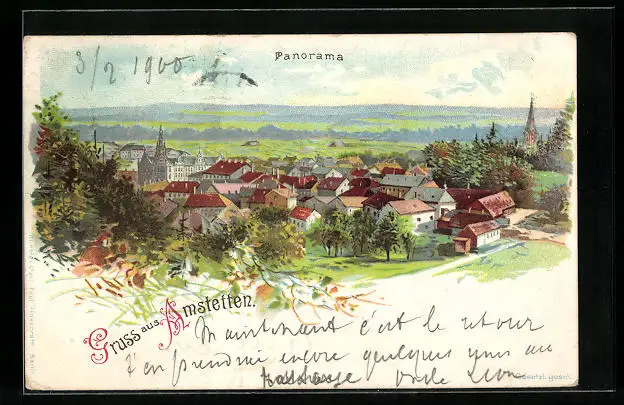 3/2 1900
Panorama
Gruss aus Amstetten.
Maintenant c'est le retour
J'en prendrai encore quelques uns au
passage Oncle Léon
Gesetzl. gesch.